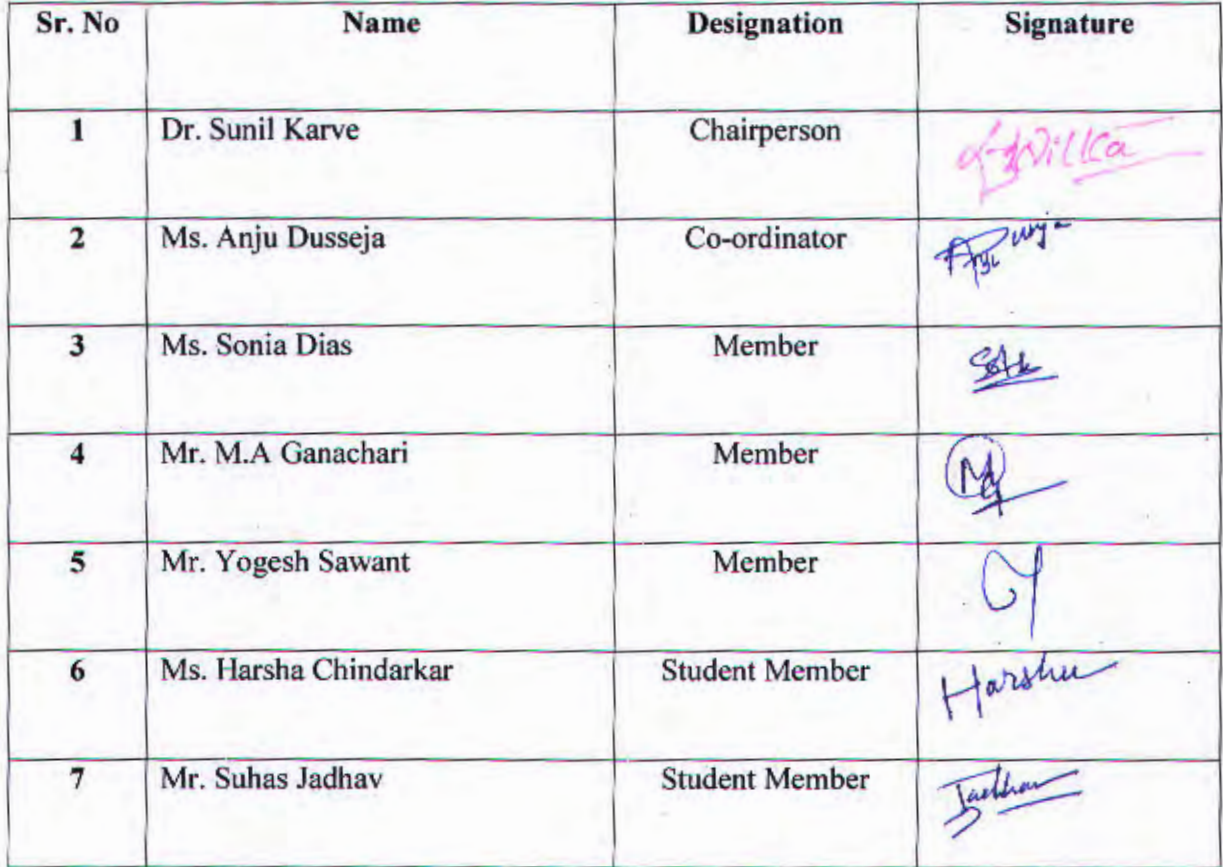 Sr. No Name Designation Signature
1 Dr. Sunil Karve Chairperson
2 Ms. Anju Dusseja Co-ordinator
3 Ms. Sonia Dias Member
4 Mr. M.A Ganachari Member
5 Mr. Yogesh Sawant Member
6 Ms. Harsha Chindarkar Student Member Harsha
7 Mr. Suhas Jadhav Student Member Jadhav